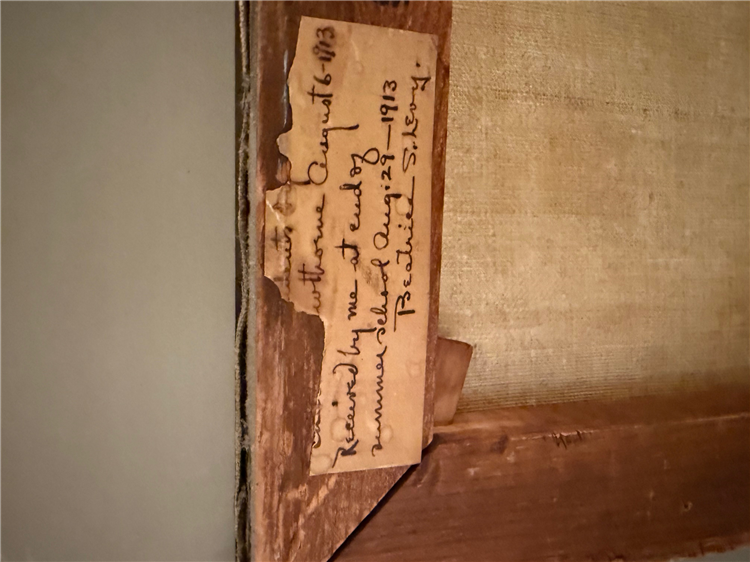 August 6-1913
Received by me at end of
summer school Aug: 29-1913
Beatrice S. Levy.